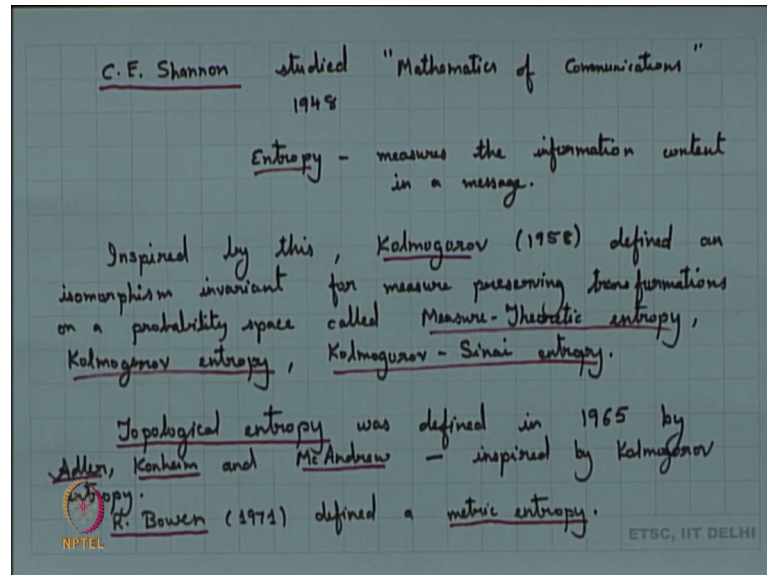 C.E. Shannon studied "Mathematics of Communications"
1948
Entropy - measures the information content
in a message.
Inspired by this, Kolmogorov (1958) defined an
isomorphism invariant for measure preserving transformations
on a probability space called Measure-Theoretic entropy,
Kolmogorov entropy, Kolmogorov - Sinai entropy.
Topological entropy was defined in 1965 by
Adler, Konheim and McAndrew - inspired by Kolmogorov
entropy.
R. Bowen (1971) defined a metric entropy.
NPTEL
ETSC, IIT DELHI